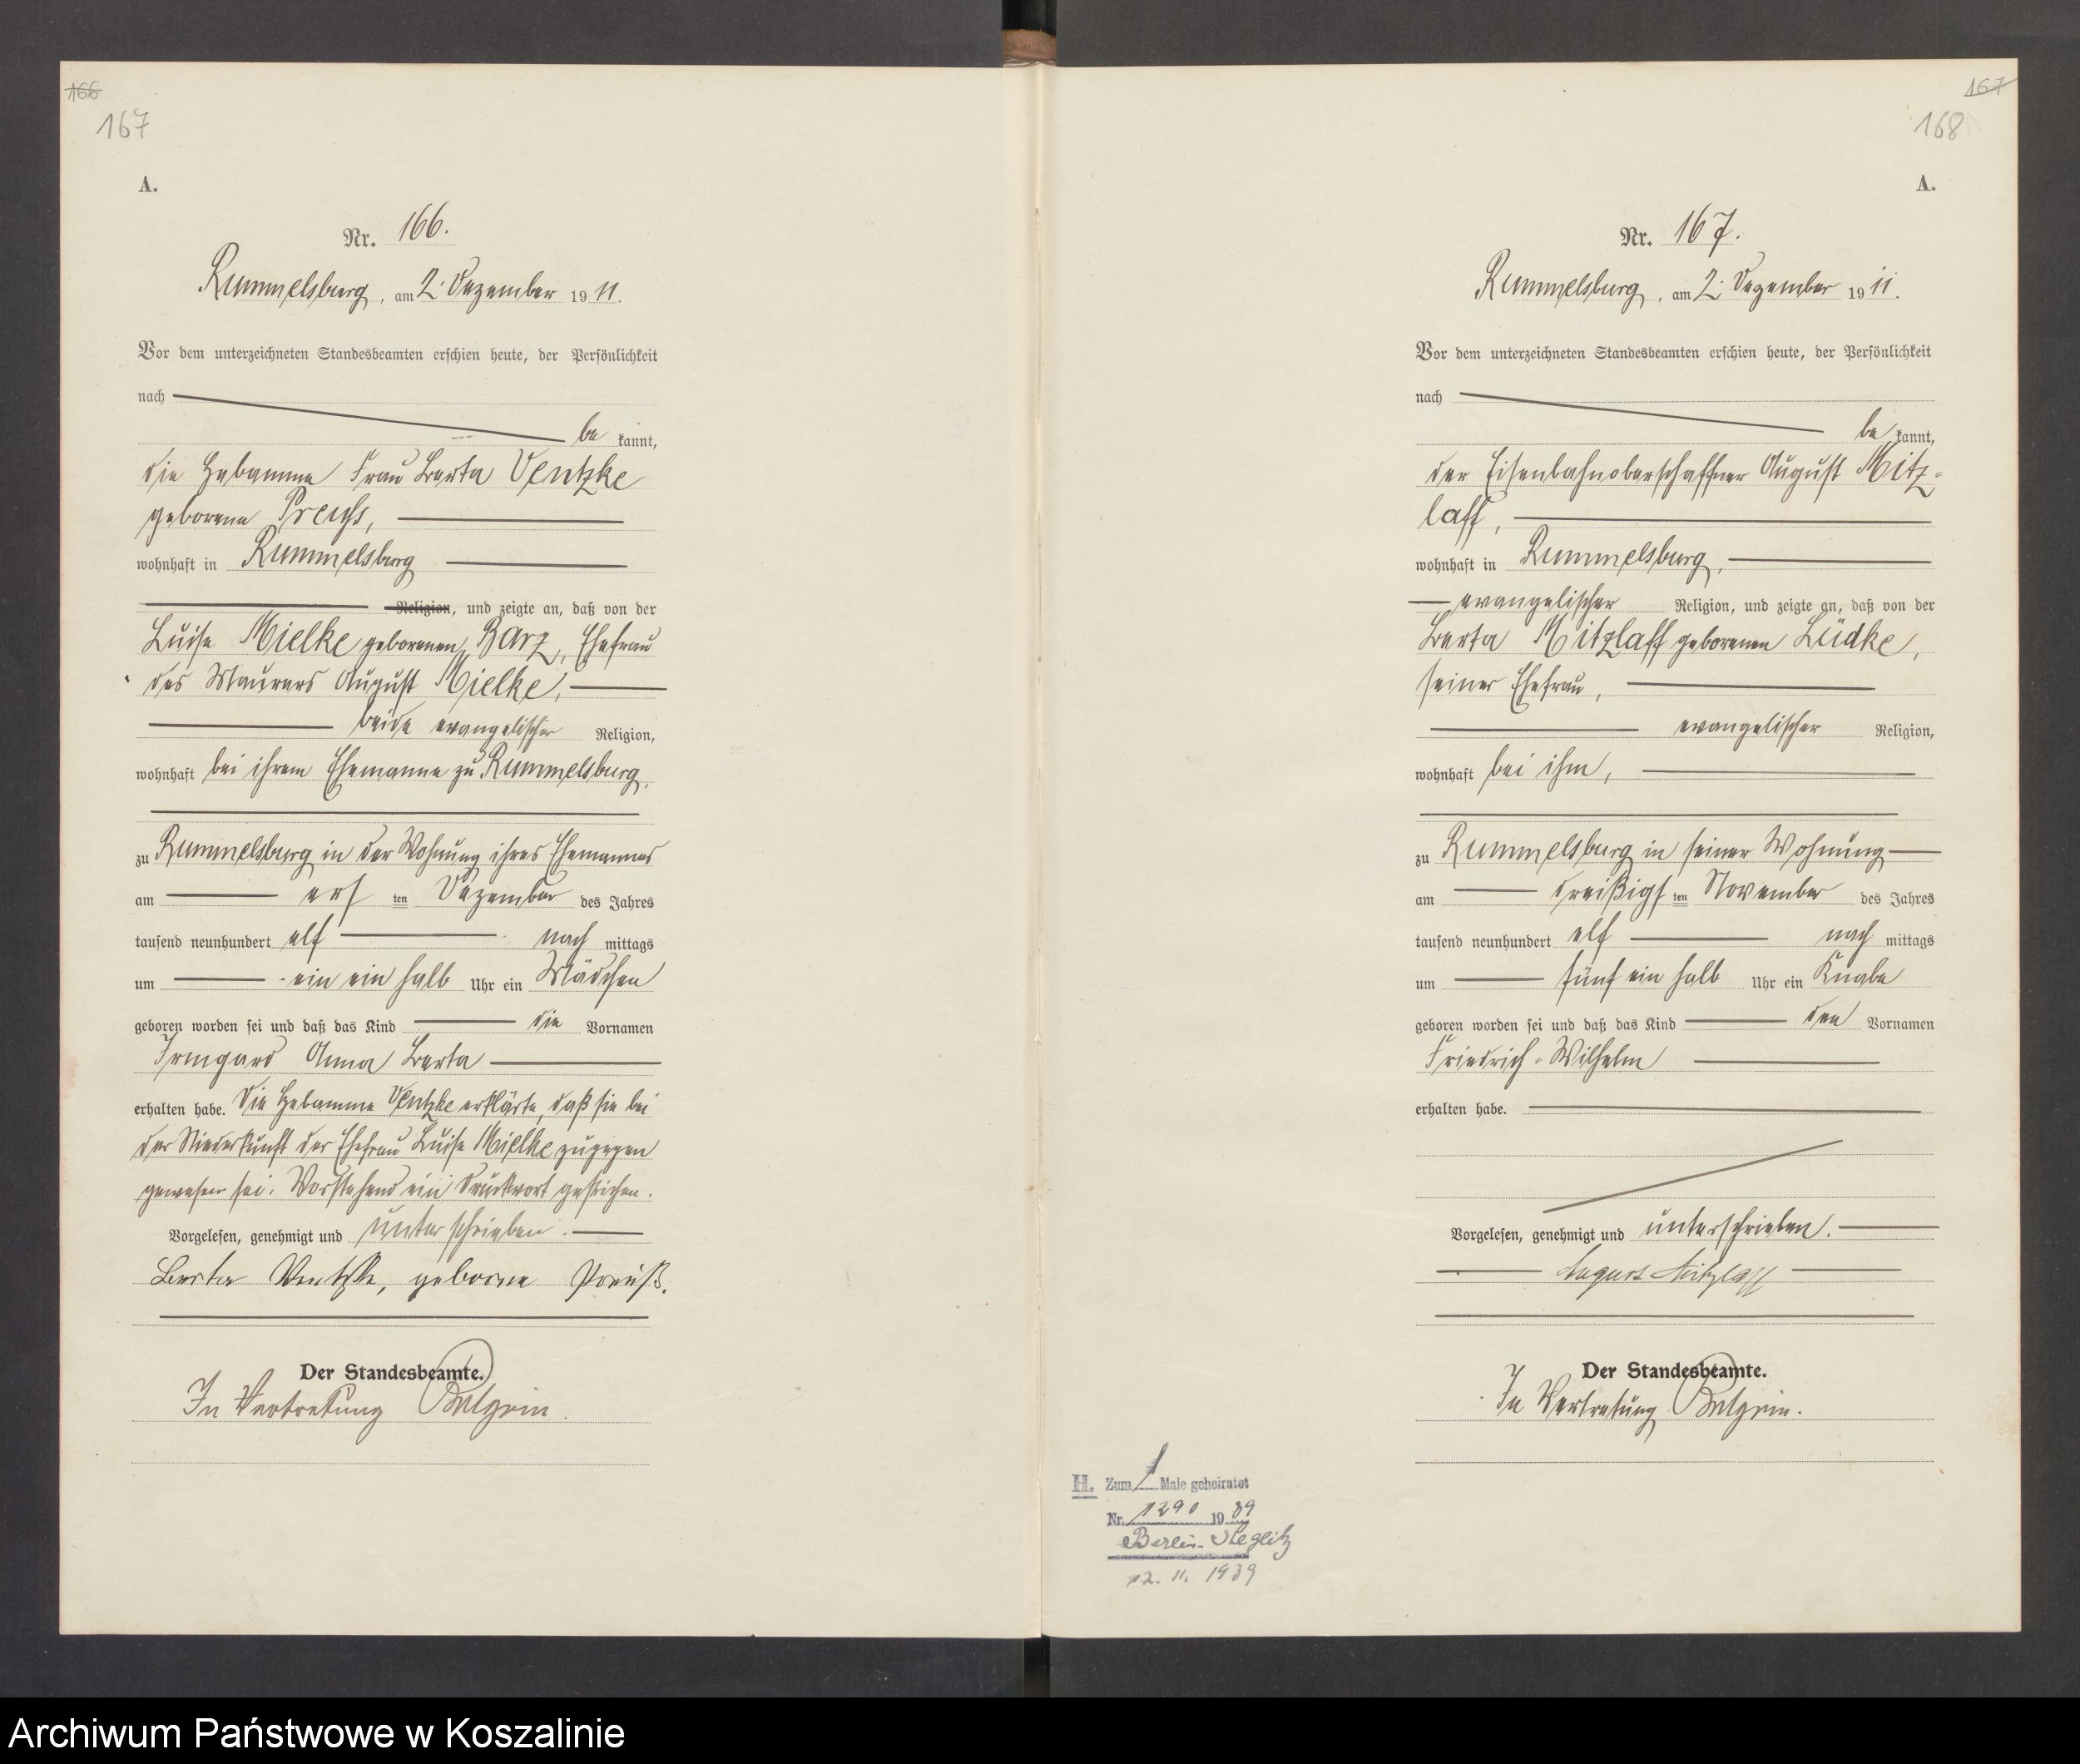 166
167
A.
Nr. 166.
Rummelsburg, am 2. Dezember 1911.
Vor dem unterzeichneten Standesbeamten erschien heute, der Persönlichkeit
nach
be kannt,
die Hebamme Frau Berta Ventzke
geborene Preuſs,
wohnhaft in Rummelsburg
Religion, und zeigte an, daß von der
Luise Mielke geborenen Barz, Ehefrau
des Maurers August Mielke,
beide evangelischer Religion,
wohnhaft bei ihrem Ehemanne zu Rummelsburg,
zu Rummelsburg in der Wohnung ihres Ehemannes
am ersten Dezember des Jahres
tausend neunhundert elf nach mittags
um ein ein halb Uhr ein Mädchen
geboren worden sei und daß das Kind die Vornamen
Irmgard Anna Berta
erhalten habe. Die Hebamme Ventzke erklärte, daß sie bei
der Niederkunft der Ehefrau Luise Mielke zugegen
gewesen sei. Vorstehend ein Druckwort gestrichen.
Vorgelesen, genehmigt und unterschrieben.
Berta Ventzke, geborne Preuß.
Der Standesbeamte.
In Vertretung
167
168
A.
Nr. 167.
Rummelsburg, am 2. Dezember 1911.
Vor dem unterzeichneten Standesbeamten erschien heute, der Persönlichkeit
nach
be kannt,
der Eisenbahnoberschaffner August Mitz-
laff,
wohnhaft in Rummelsburg,
evangelischer Religion, und zeigte an, daß von der
Berta Mitzlaff geborenen Lüdke,
seiner Ehefrau,
evangelischer Religion,
wohnhaft bei ihm,
zu Rummelsburg in seiner Wohnung
am dreißigsten November des Jahres
tausend neunhundert elf nach mittags
um fünf ein halb Uhr ein Knabe
geboren worden sei und daß das Kind den Vornamen
Friedrich-Wilhelm
erhalten habe.
Vorgelesen, genehmigt und unterschrieben.
August Mitzlaff
Der Standesbeamte.
In Vertretung
H. Zum 1 Male geheiratet
Nr. 1290 1939
Berlin-Steglitz
12. 11. 1939
Archiwum Państwowe w Koszalinie